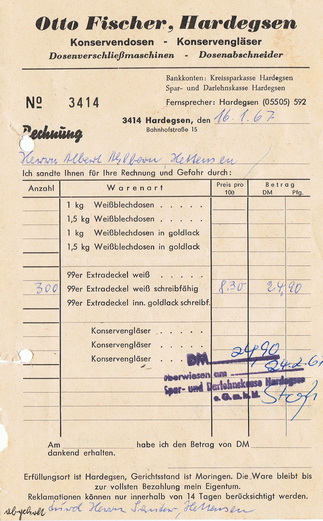 Otto Fischer, Hardegsen
Konservendosen - Konservengläser
Dosenverschließmaschinen - Dosenabschneider
Bankkonten: Kreissparkasse Hardegsen
Spar- und Darlehnskasse Hardegsen
Nº 3414
Fernsprecher: Hardegsen (05505) 592
3414 Hardegsen, den 16.1.67
Bahnhofstraße 15
Rechnung
Herrn Albert Ahlborn, Hettensen
Ich sandte Ihnen für Ihre Rechnung und Gefahr durch:
Anzahl Warenart Preis pro 100 Betrag DM Pfg.
1 kg Weißblechdosen
1,5 kg Weißblechdosen
1 kg Weißblechdosen in goldlack
1,5 kg Weißblechdosen in goldlack
99er Extradeckel weiß
300 99er Extradeckel weiß schreibfähig 8.30 24,90
99er Extradeckel inn. goldlack schreibf.
Konservengläser
Konservengläser
Konservengläser
DM 24,90
überwiesen am 24.2.67
Spar- und Darlehnskasse Hardegsen
e.G.m.b.H.
Am habe ich den Betrag von DM
dankend erhalten.
Erfüllungsort ist Hardegsen, Gerichtsstand ist Moringen. Die Ware bleibt bis
zur vollsten Bezahlung mein Eigentum.
Reklamationen können nur innerhalb von 14 Tagen berücksichtigt werden.
abgeholt durch Herrn Hettensen